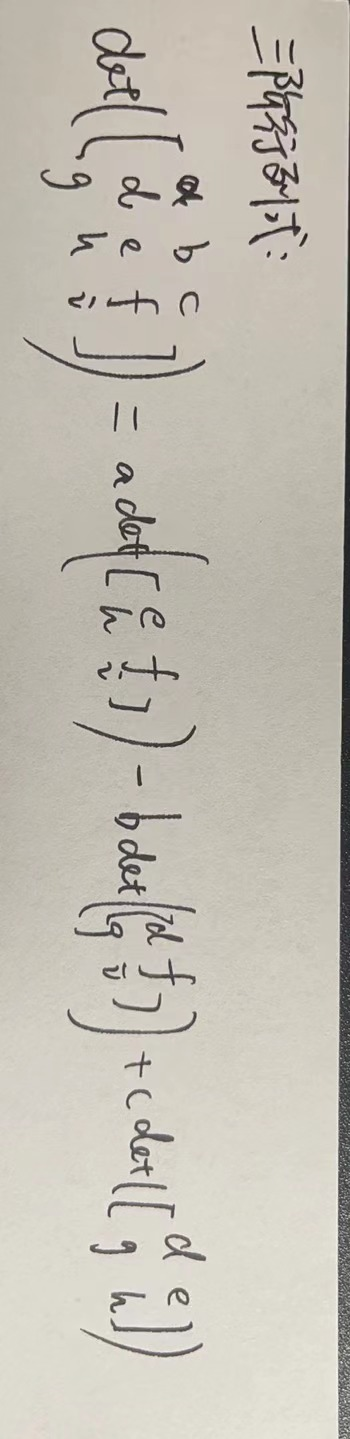 三阶行列式:
det([a b c
d e f
g h i]) = a det([e f
h i]) - b det([d f
g i]) + c det([d e
g h])